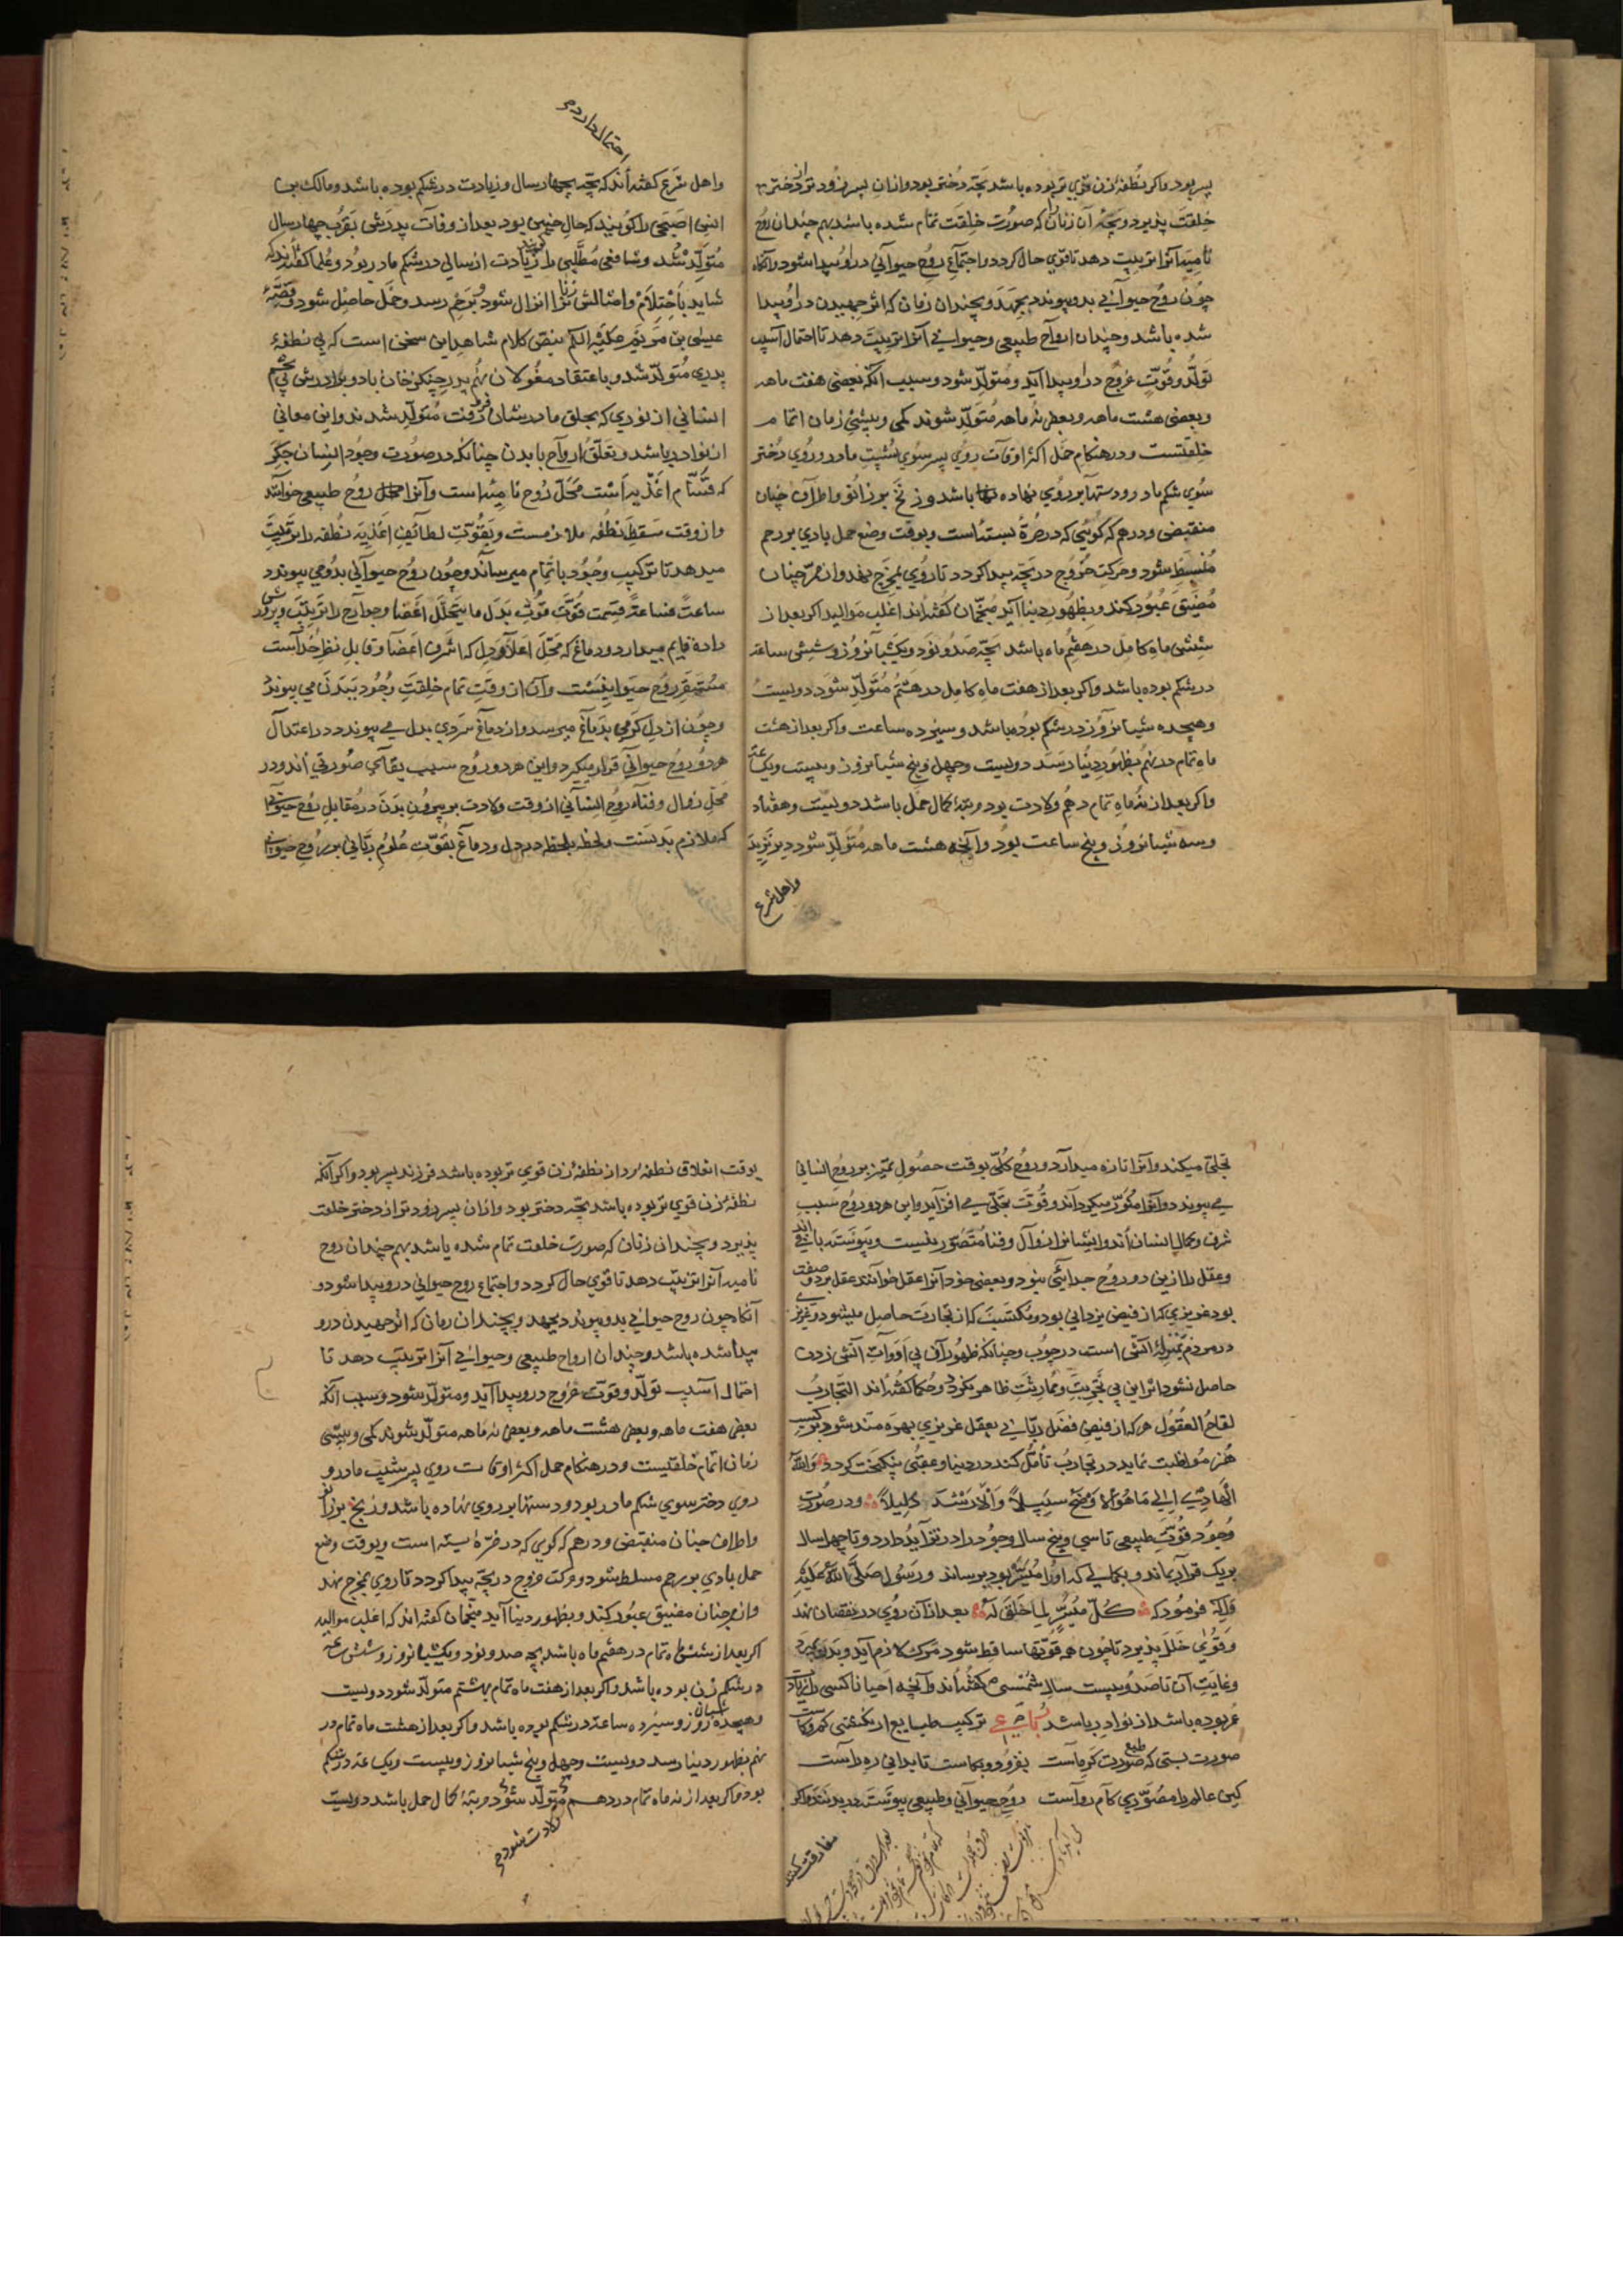 پسر بود و اکر نطفهٔ زن قوي تر بوده باشد بچه دختر بود و ازان پسر زود تر از دختر
خلقت پذیرد و بچه آن زنان که صورت خلقت تمام شده باشد بهم چندان روح
نامیه آنرا تربیت دهد تا قوي حال کردد و اجتماع روح حیوآني در او پیدا شود و آنکاه
چون روح حیواني بدو پیوندد بجهد و بچندان زمان که اثر جهیدن در او پیدا
شده باشد و چندان ارواح طبیعی و حیوانی آنرا تربیت دهد تا احتمال آسیب
تولد و قوت خروج در او پیدا آید و متولد شود و سبب آنکه بعضی هفت ماهه
و بعضی هشت ماهه و بعضی نه ماهه متولد شوند کمی و بیشی زمان اتمام
خلقتست و در هنکام حمل اکثر اوقات روي پسر سوي پشت مادر و روي دختر
سوي شکم مادر و دستها بر روي نهاده باشد و زنخ بر زانو و اطراف چنان
منقبض و درهم که کوئي که در صره بسته است و بوقت وضع حمل بادي بر رحم
منبسط شود و حرکت خروج در بچه پیدا کردد تا روي بمخرج نهد و ازان ممر چنان
مضیق عبور کند و بظهور دنیا آید منجمان کفته اند اغلب موالید اکر بعد از
شش ماه کامل در هفتم ماه باشد بچه صد و نود و یک شبانروز و شش ساعة
در شکم بوده باشد و اکر بعد از هفت ماه کامل در هشتم متولد شود دویست
و هیجده شبانروز در شکم بوده باشد و سیزده ساعت و اکر بعد از هشت
ماه تمام در نهم بظهور دنیا رسد دویست و چهل و پنج شبانروز و بیست ویک ساعة
و اکر بعد از نه ماه تمام دهم ولادت بود و بر کمال حمل باشد دویست و هفتاد
و سه شبانروز و پنج ساعت بود و آنچه هشت ماهه متولد شود دیر نزید
و اهل شرع
احتمال دارد
و اهل شرع کفته اند که بچه بچهار سال و زیادت در شکم بوده باشد و مالک بن
انس اصبحی را کویند که حال چنین بود بعد از وفات پدرش بقرب چهار سال
متولد شد و شافعی مطلبی را زیادت از سالی در شکم مادر بود و علما کفته اند که
شاید باحتلام و امثالش زنا انزال شود و برحم رسد و حمل حاصل شود و قصهٔ
عیسی بن مریم علیه السلم بنص کلام شاهد این سخن است که بي نطفهٔ
پدري متولد شد و باعتقاد مغولان نهم پدر چنکز خان با دو برادرش
انساني از نوري که بحلق مادرشان فرو رفت متولد شدند و این معاني
از نوادر باشد و تعلق ارواح با بدن چنانکه در صورت وجود انسان جکر
که قسام اغذیه است محل روح نامیه است و آنرا روح طبیعی خوانند
و از وقت سقط نطفه ملازمست و بقوت لطائف اغذیه نطفه را تربیت
میدهد تا ترکیب وجود باتمام میرساند و چون روح حیوآني بدو می پیوندد
ساعة فساعة قسمت قوت بدل ما یتحلل اعضا و جوارح را تربیت و پرورش
داده قایم میدارد و دماغ که محل اعلا و دل که اشرف اعضا و قابل نظر خداست
مستقر روح حیوانیست و آن از وقت تمام خلقت وجود ببدن می پیوندد
و چون از دل کرمي بدماغ میرسد و از دماغ سردي بدل می پیوندد در اعتدال
هر دو روح حیوآني قرار میکیرد و این هر دو روح سبب بقاي صورتي اند و در
محل زوال و فنا و روح انساني از وقت ولادت بر بیرون بدن در مقابل روح حیواني
که ملازم بدنست و لحظه بلحظه در دل و دماغ بقوت علوم رباني بر روح حیواني
تجلی میکند و آنرا تازه میدارد و روح کلي بوقت حصول تمیز بروح انساني
می پیوندد و آنرا منور میکرداند و قوت تجلی می افزاید و این هر دو روح سبب
شرف و کمال انسان اند و ایشانرا زوال و فنا متصور نیست و پیوسته باقي اند
و عقل را ازین دو روح جدائي نبود و بعضی خود آنرا عقل خوانند عقل بر دو صفت
بود غریزي که از فیض یزداني بود و مکتسب که از تجارب حاصل میشود و غریزي
در مردم بمنزلهٔ آتش است در چوب و چنانکه ظهور آن بي ادوات آتش زدن
حاصل نشود اثر این بي تجربت و ممارست ظاهر نکردد و حکما کفته اند التجارب
لقاح العقول هر که از فیض فضل رباني بعقل غریزي بهره مند شود و بر کسب
هنر مواظبت نماید در تجارب تأمل کند در دنیا و عقبی نیکبخت کردد والله
الهادي الی ما هو اوضح سبیلاً و ارشد دلیلاً و در صورت
وجود قوت طبیعی تا سي و پنج سال وجود را در تزاید دارد و تا چهل سال
بر یک قرار بماند و بکمالي که او را میسر بود برساند و رسول صلی الله علیه
و آله فرمود که کل میسر لما خلق له بعد ازآن روي در نقصان نهد
و قوی خلل پذیرد تا چون همه قوتها ساقط شود مرک لازم آید و بدن بمیرد
و غایت آن تا صد و بیست سال شمسی کفته اند و آنچه احیانا کسی را زیادت
عمر بوده باشد از نوادر باشد مصرع ترکیب طبایع ار نکشتی کم و کاست
صورت بستی که طبع صورت کر ماست بفزود و بکاست تا بداني ره راست
کین عالم را مصوري کام رواست روح حیوآني و طبیعی پیوسته در بدنند و اکر
مفارقت کنند
بوقت انعلاق نطفهٔ مرد از نطفهٔ زن قوي تر بوده باشد فرزند پسر بود و اکر آنکه
نطفهٔ زن قوي تر بوده باشد بچه دختر بود و ازان پسر زودتر از دختر خلقت
پذیرد و بچندانی زنان که صورت خلقت تمام شده باشد بهم چندان روح
نامیه آنرا تربیت دهد تا قوي حال کردد و اجتماع روح حیواني درو پیدا شود و
آنکاه چون روح حیواني بدو پیوندد بجهد و بچندان زمان که اثر جهیدن درو
پیدا شده باشد و چندان ارواح طبیعی و حیواني آنرا تربیت دهد تا
احتمال آسیب تولد و قوت خروج درو پیدا آید و متولد شود و سبب آنکه
بعضی هفت ماهه و بعضی هشت ماهه و بعضی نه ماهه متولد شوند کمی و بیشی
زمان اتمام خلقتست و در هنکام حمل اکثر اوقات روي پسر بپشت مادر و
روي دختر سوي شکم مادر بود و دستها بر روي نهاده باشد و زنخ بر زانو
و اطراف چنان منقبض و درهم که کوي که در صرهٔ بسته است و بوقت وضع
حمل بادي بر رحم مسلط شود و حرکت خروج در بچه پیدا کردد تا روي بمخرج نهد
و ازممر چنان مضیق عبور کند و بظهور دنیا آید منجمان کفته اند که اغلب موالید
اکر بعد از شش ماه تمام در هفتم ماه باشد بچه صد و نود و یکشبانروز و شش ساعة
در شکم زن بوده باشد و اکر بعد از هفت ماه تمام بهشتم متولد شود دویست
و هیجده شبانروز و سیزده ساعة در شکم بوده باشد و اکر بعد از هشت ماه تمام در
نهم بظهور دنیا رسد دویست و چهل و پنج شبانروز و بیست ویک ساعة در شکم
بود و اکر بعد از نه ماه تمام در دهم متولد شود و بر کمال حمل باشد دویست
ولادت شود